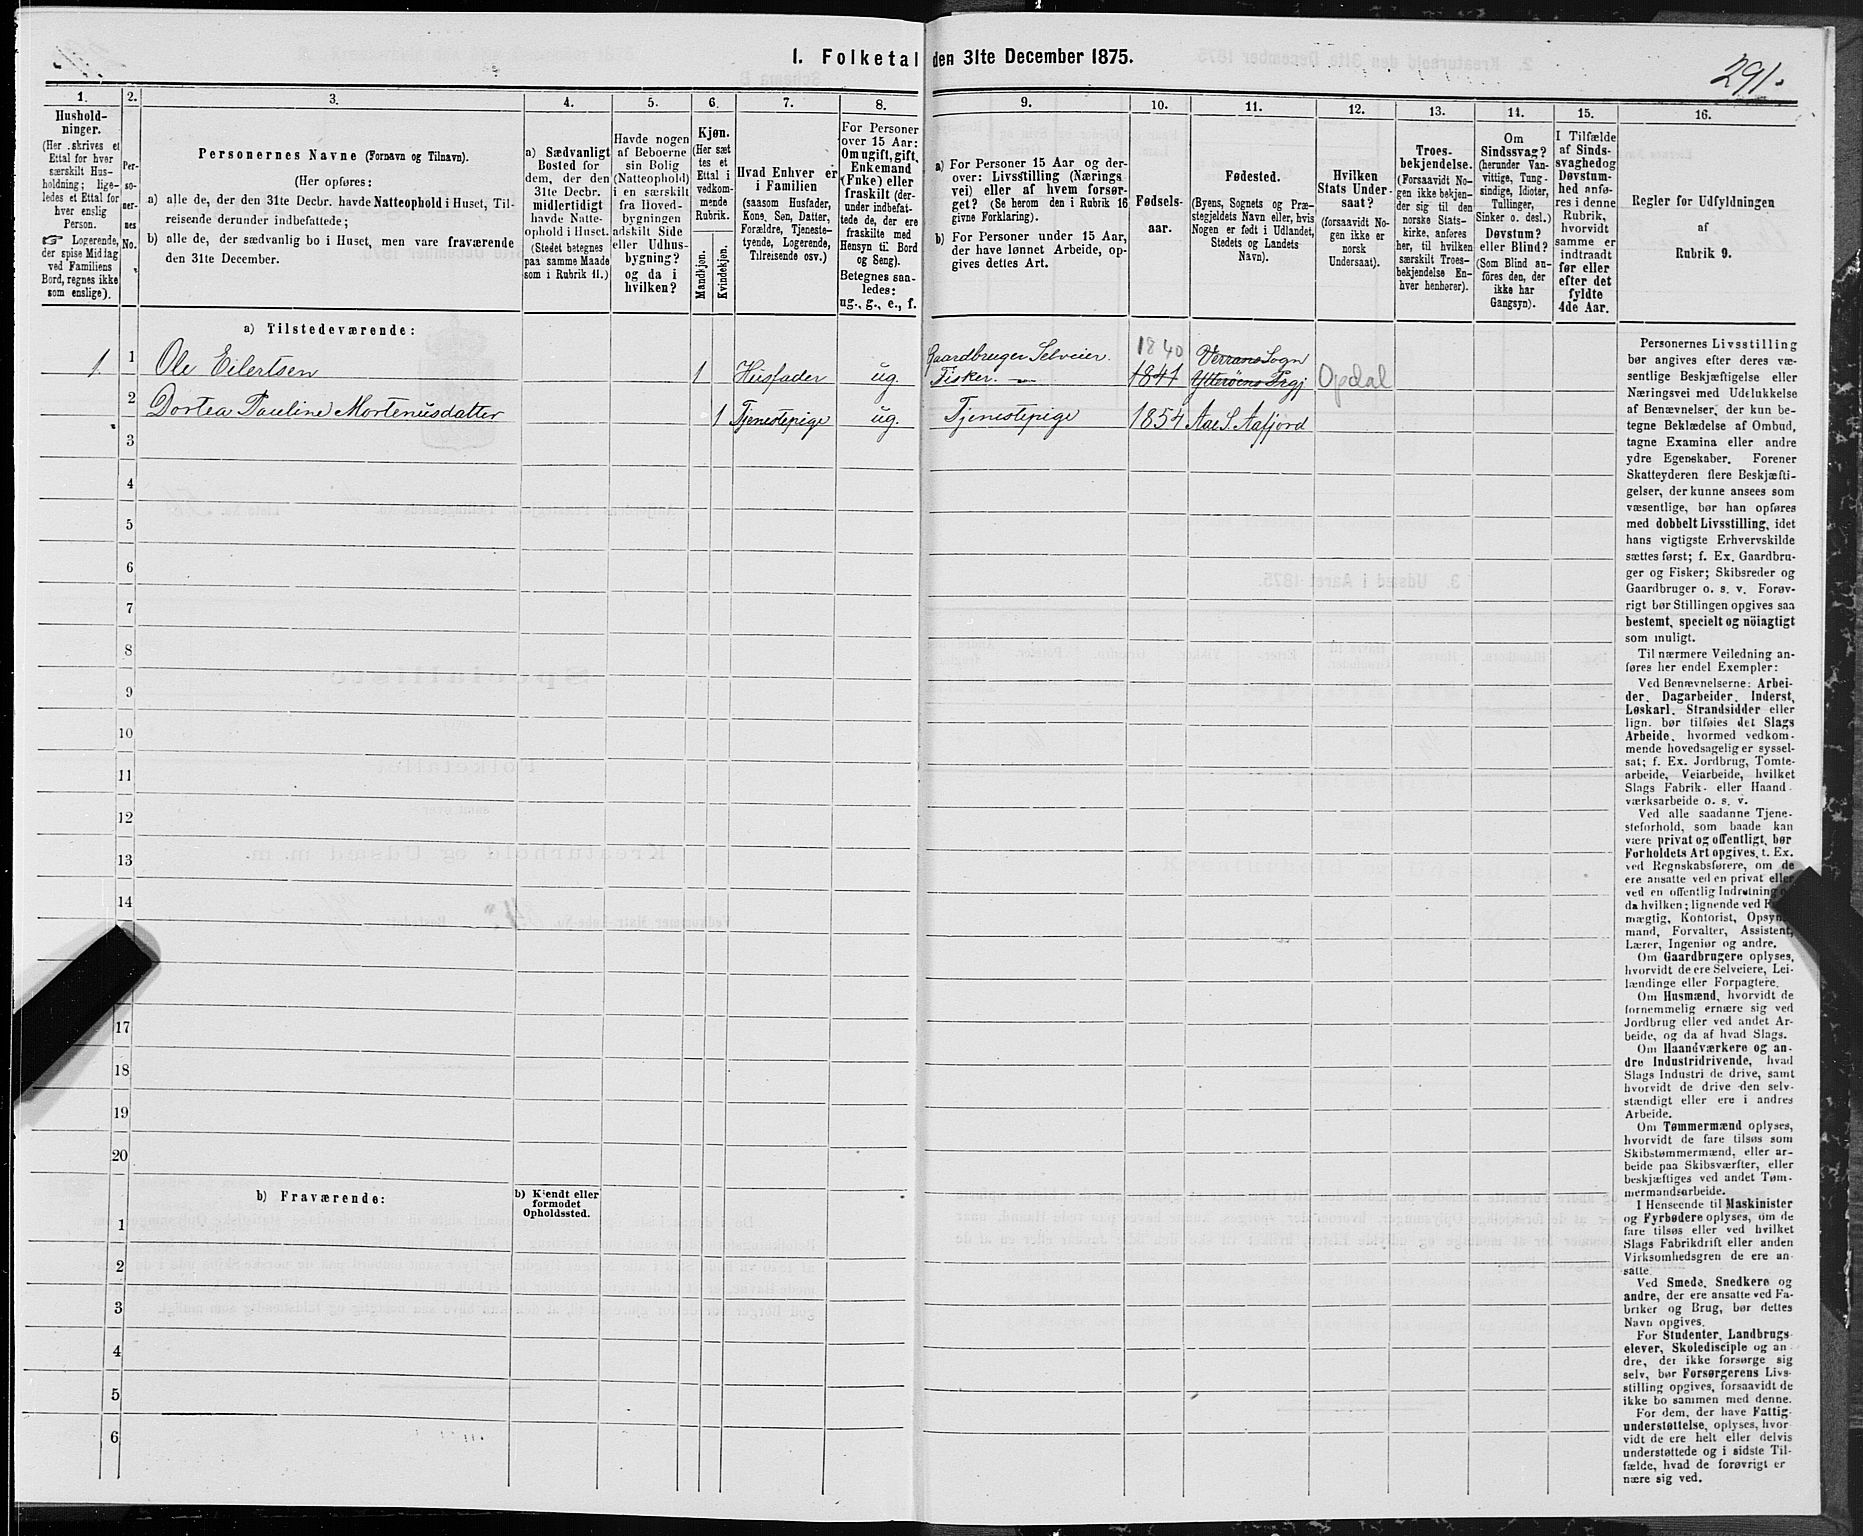 I. Folketal den 31te December 1875.
291.
1.
Hushold-
ninger.
(Her skrives et
Ettal for hver
særskilt Hus-
holdning; lige-
ledes et Ettal for
hver enslig
Person.
☞ Logerende,
der spise Middag
ved Familiens
Bord, regnes ikke
som enslige).
2.
Per-
so-
ner-
nes
No.
3.
Personernes Navne (Fornavn og Tilnavn).
(Her opføres:
a) alle de, der den 31te Decbr. havde Natteophold i Huset, Til-
reisende derunder indbefattede;
b) alle de, der sædvanlig bo i Huset, men vare fraværende
den 31te December.
4.
a) Sædvanligt
Bosted for
dem, der den
31te Decbr.
midlertidigt
havde Natte-
ophold i Huset.
(Stedet betegnes
paa samme Maade
som i Rubrik 11.)
5.
Havde nogen
af Beboerne
sin Bolig
(Natteophold)
i en særskilt
fra Hoved-
bygningen
adskilt Side
eller Udhus-
bygning?
og da i
hvilken?
6.
Kjøn.
(Her sæt
tes et
Ettal i
vedkom-
mende
Rubrik.
Mandkjøn.
Kvindekjøn.
7.
Hvad Enhver er
i Familien
(saasom Husfader,
Kone, Søn, Datter,
Forældre, Tjeneste-
tyende, Logerende,
Tilreisende osv.)
8.
For Personer
over 15 Aar:
Om ugift, gift,
Enkemand
(Enke) eller
fraskilt (der-
under indbefat-
tede de, der ere
fraskilte med
Hensyn til Bord
og Seng).
Betegnes saa-
ledes:
ug., g., e., f.
9.
a) For Personer 15 Aar og der-
over: Livsstilling (Nærings
vei) eller af hvem forsør-
get? (Se herom den i Rubrik 16
givne Forklaring).
b) For Personer under 15 Aar,
der have lønnet Arbeide, op-
gives dettes Art.
10.
Fødsels-
aar.
11.
Fødested.
(Byens, Sognets og Præ-
stegjeldets Navn eller, hvis
Nogen er født i Udlandet,
Stedets og Landets
Navn).
12.
Hvilken
Stats Under-
saat?
(forsaavidt No-
gen ikke er
norsk
Undersaat).
13.
Troes-
bekjendelse.
(Forsaavidt No-
gen ikke bekjen-
der sig til den
norske Stats-
kirke, anføres
her, til hvilken
særskilt Troes-
bekjendelse En-
hver henhører).
14.
Om
Sindssvag?
(herunder Van-
vittige, Tung-
sindige, Idioter,
Tullinger,
Sinker o. desl.)
Døvstum?
eller Blind?
(Som Blind an-
føres den, der
ikke har
Gangsyn).
15.
I Tilfælde
af Sinds-
svaghed og
Døvstum-
hed anfø-
res i denne
Rubrik,
hvorvidt
samme er
indtraadt
før eller
efter det
fyldte
4de Aar.
16.
Regler for Udfyldningen
af
Rubrik 9.
a) Tilstedeværende:
1 1 Ole Eilertsen 1 Husfader ug. Gaardbruger Selveier. Fisker. 1840 1841 Verrans Sogn Ytterøens Prgj Opdal
2 Dortea Pauline Mortenusdatter 1 Tjenestepige ug. Tjenestepige 1854 Aae S. Aafjord
3
4
5
6
7
8
9
10
11
12
13
14
17
18
19
20
b) Fraværende:
b) Kjendt eller
formodet
Opholdssted.
1
2
3
4
5
6
Personernes Livsstilling
bør angives efter deres væ-
sentlige Beskjæftigelse eller
Næringsvei med Udelukkelse
af Benævnelser, der kun be-
tegne Beklædelse af Ombud,
tagne Examina eller andre
ydre Egenskaber. Forener
Skatteyderen flere Beskjæfti-
gelser, der kunne ansees som
væsentlige, bør han opføres
med dobbelt Livsstilling, idet
hans vigtigste Erhvervskilde
sættes først; f. Ex. Gaardbru-
ger og Fisker; Skibsreder og
Gaardbruger o. s. v. Forøv-
rigt bør Stillingen opgives saa
bestemt, specielt og nöiagtigt
som muligt.
Til nærmere Veiledning an-
føres her endel Exempler:
Ved Benævnelserne: Arbei-
der, Dagarbeider, Inderst,
Løskarl, Strandsidder eller
lign. bør tilføies det Slags
Arbeide, hvormed vedkom-
mende hovedsagelig er syssel-
sat; f. Ex. Jordbrug, Tomte-
arbeide, Veiarbeide, hvilket
Slags Fabrik- eller Haand-
værksarbeide o. s. v.
Ved alle saadanne Tjene-
steforhold, som baade kan
være privat og offentligt, bør
Forholdets Art opgives, t. Ex.
ved Regnskabsførere, om de
ere ansatte ved en privat eller
ved en offentlig Indretning
da hvilken; lignende ved
mægtig, Kontorist, Opsyn
mand, Forvalter, Assistent,
Lærer, Ingeniør og andre.
Om Gaardbrugere oplyses,
hvorvidt de ere Selveiere, Lei-
lændinge eller Forpagtere.
Om Husmænd, hvorvidt de
fornemmelig ernære sig ved
Jordbrug eller ved andet Ar-
beide, og da af hvad Slags.
Om Haandværkere og an-
dre Industridrivende, hvad
Slags Industri de drive, samt
hvorvidt de drive den selv-
stændigt eller ere i andres
Arbeide.
Om Tømmermænd oplyses,
hvorvidt de fare tilsøs som
Skibstømmermænd, eller ar-
beide paa Skibsværfter, eller
beskjæftiges ved andet Tøm-
mermandsarbeide.
I Henseende til Maskinister
og Fyrbødere oplyses, om de
fare tilsøs eller ved hvilket
Slags Fabrikdrift eller anden
Virksomhedsgren de ere an-
satte.
Ved Smede, Snedkere og
andre, der ere ansatte ved Fa-
briker og Brug, bør dettes
Navn opgives.
For Studenter, Landbrugs-
elever, Skoledisciple og an
dre, der ikke forsørge sig
selv, bør Forsørgerens Livs-
stilling opgives, forsaavidt de
ikke bo sammen med denne.
For dem, der have Fattig-
understøttelse, oplyses, hvor-
vidt de ere helt eller delvis
understøttede og i sidste Til-
fælde, hvad de forøvrigt er
nære sig ved.